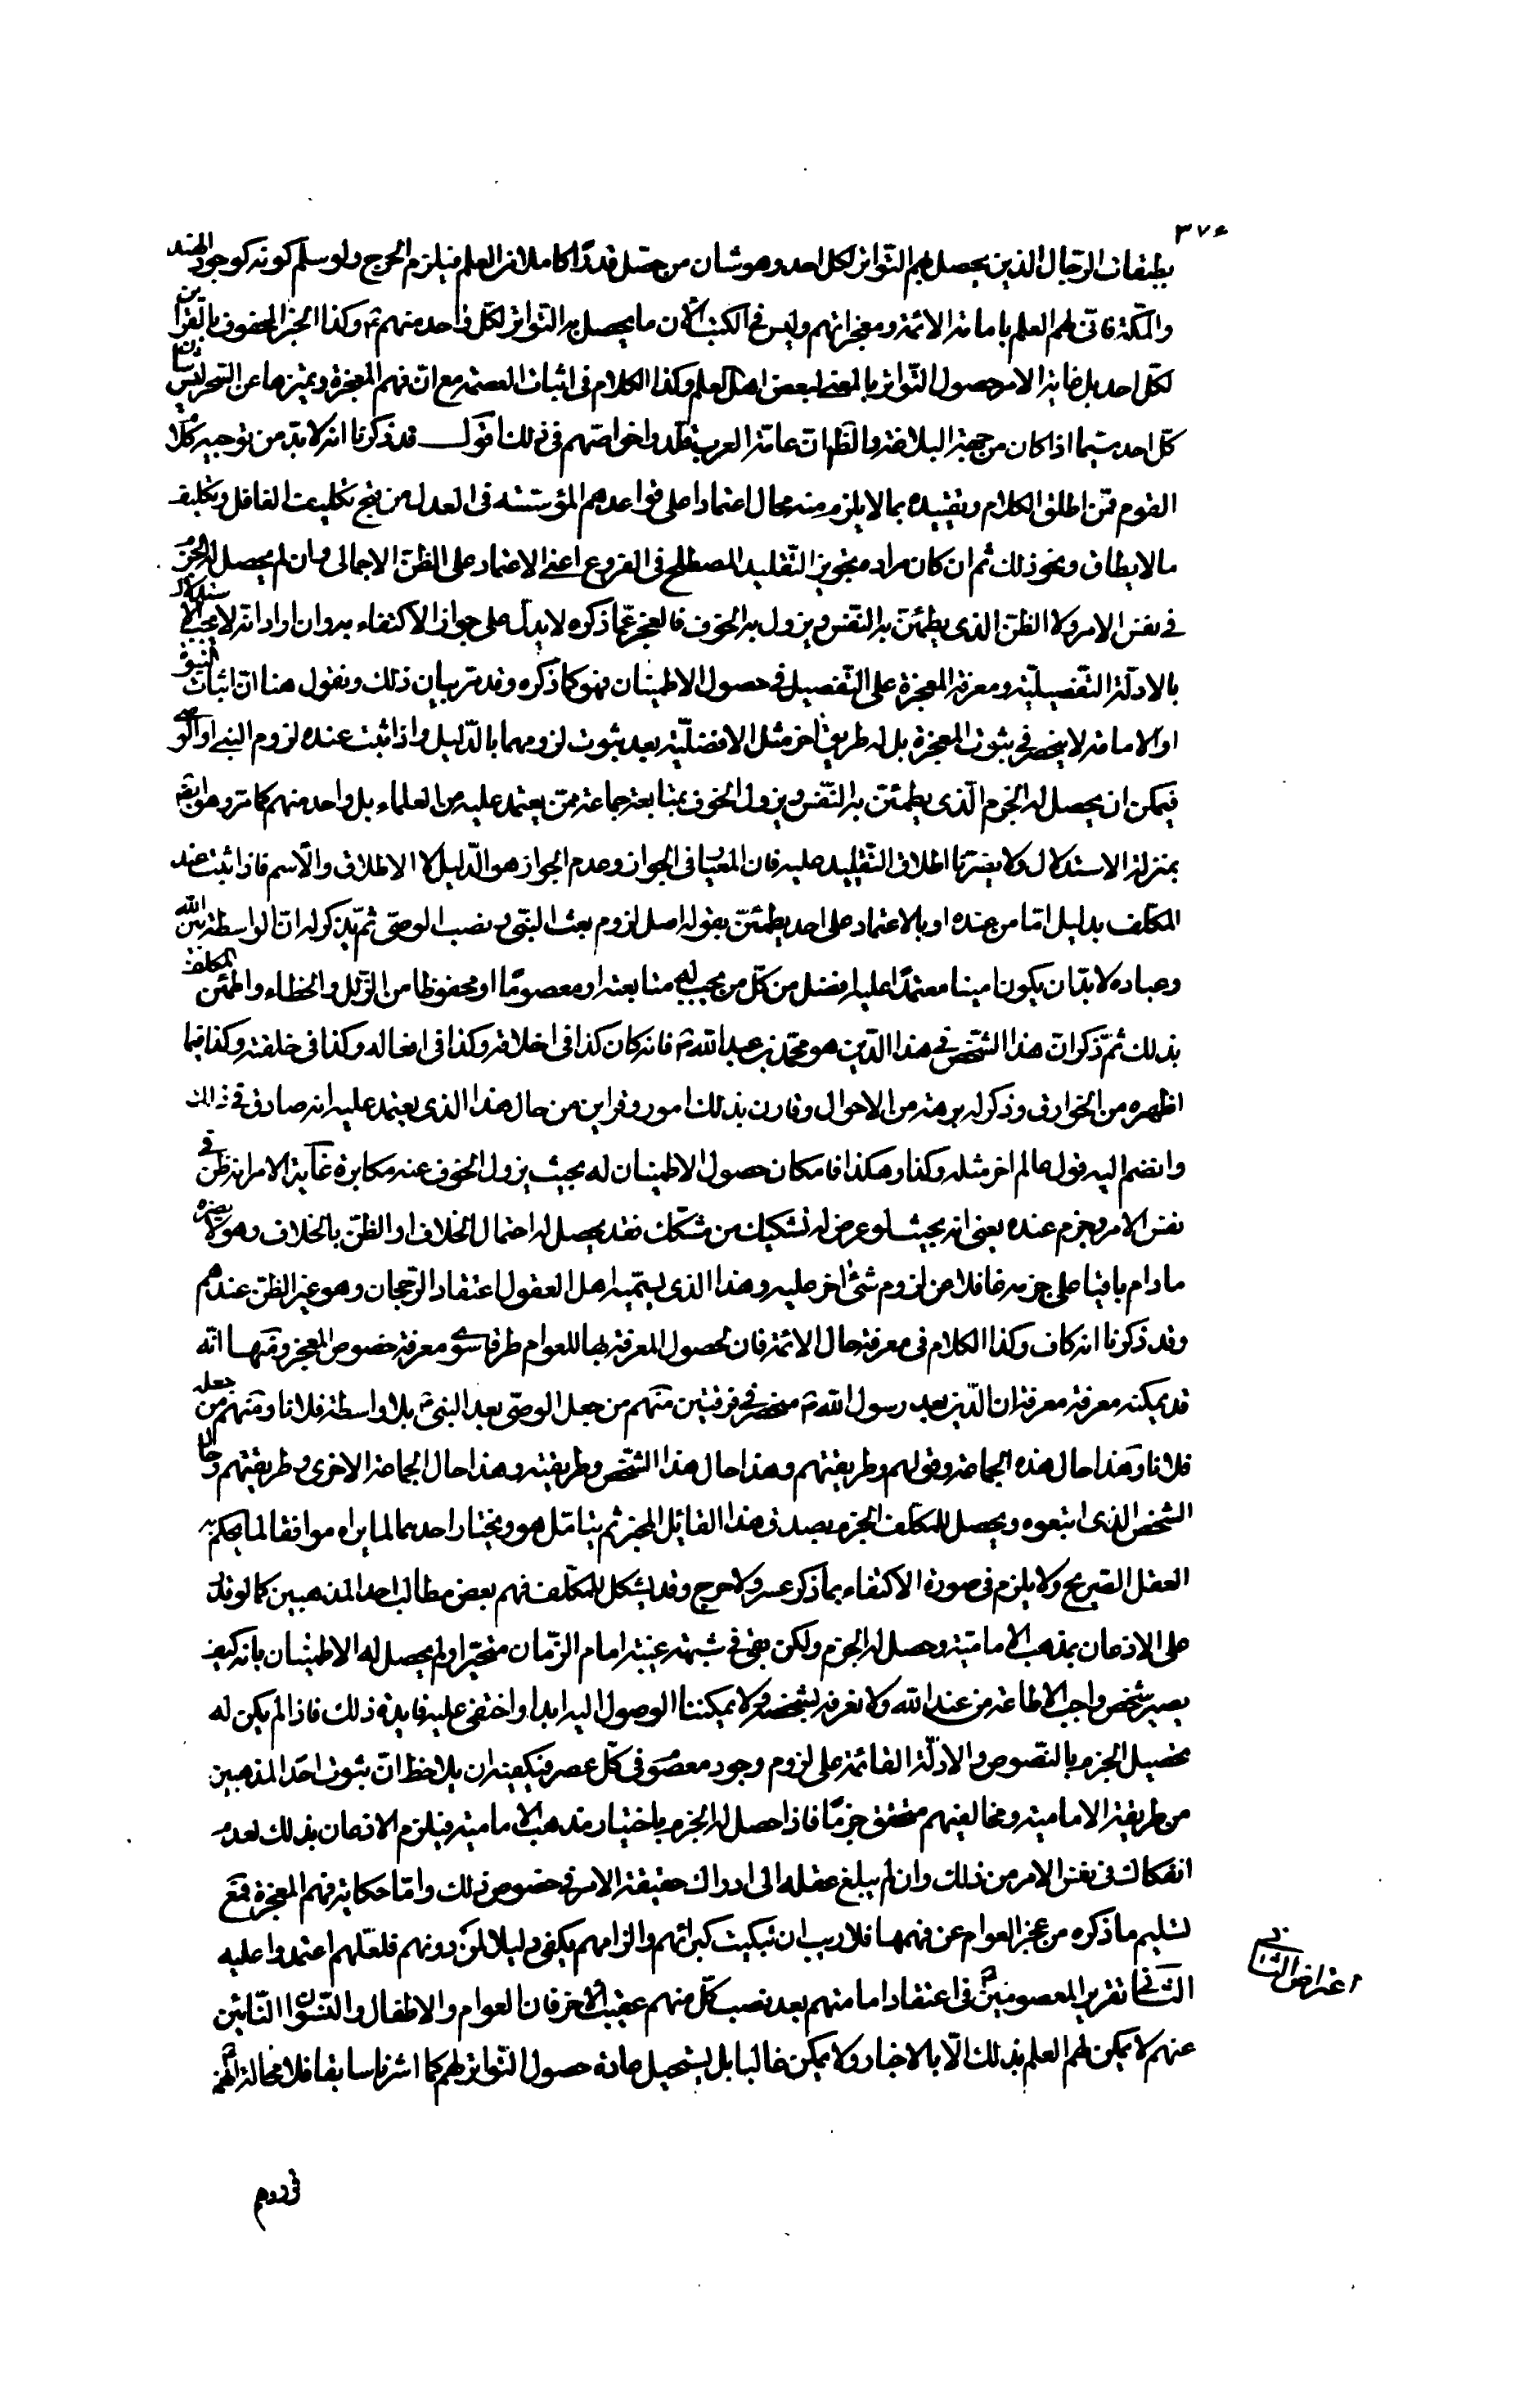 ٣٧٤
بطبقات الرجال الذين يحصل بهم التواتر لكل احد وهو شان من حصل قدرا كاملا من العلم فيلزم الحرج ولو سلم كونه كوجود الهند
والمكة فانى لهم العلم بامامة الائمة ومعجزاتهم وليس فى الكتب الان ما يحصل به التواتر لكل واحد منهم ع وكذا الخبر المحفوف بالقراين
لكل احد بل غاية الامر حصول التواتر بالمعنى لبعض اهل العلم وكذا الكلام فى اثبات العصمة مع ان فهم المعجزة وتميزها عن السحر ليس شان
كل احد سيما اذا كان من جهة البلاغة والظاهر ان عامة العرب قلدوا خواصهم فى ذلك اقول قد ذكرنا انه لا بد من توجيه كلام
القوم ممن اطلق الكلام وتقييده بما لا يلزم منه محال اعتمادا على قواعدهم المؤسسة فى العدل من قبح تكليف الغافل وتكليف
ما لا يطاق ونحو ذلك ثم ان كان مراده تجويز التقليد المصطلح فى الفروع اعنى الاعتماد على الظن الاجمالى وان لم يحصل له الجزم
فى نفس الامر ولا الظن الذى يطمئن به النفس ويزول به الخوف فالعجز عما ذكره لا يدل على جواز الاكتفاء به وان اراد انه لا يجب الاستدلال
بالادلة التفصيلية ومعرفة المعجزة على التفصيل فى حصول الاطمينان فهو كما ذكره وقد مر بيان ذلك ونقول هنا ان اثبات النبوة
او الامامة لا ينحصر فى ثبوت المعجزة بل له طريق اخر مثل الافضلية بعد ثبوت لزومهما بالدليل واذا ثبت عنده لزوم النبى او الوصى
فيمكن ان يحصل له الجزم الذى يطمئن به النفس ويزول الخوف بمتابعة جماعة ممن يعتمد عليه من العلماء بل واحد منهم كما مر وهو ايضا
بمنزلة الاستدلال ولا يضرنا اطلاق التقليد عليه فان المعيار فى الجواز وعدم الجواز هو الدليل لا الاطلاق والاسم فاذا ثبت عند
المكلف بدليل اما من عنده او بالاعتماد على احد يطمئن بقوله اصل لزوم بعث النبى ونصب الوصى ثم يذكر له ان الواسطة بين الله
وعباده لا بد ان يكون امينا معتمدا عليه افضل من كل من يجب له متابعته او معصوما او محفوظا من الزلل والخطاء واطمئن المكلف
بذلك ثم ذكر ان هذا الشخص فى هذا الدين هو محمد بن عبد الله ص فانه كان كذا فى اخلاقه وكذا فى افعاله وكذا فى خلقته وكذا فيما
اظهره من الخوارق وذكر له برهة من الاحوال وقارن بذلك امور وقراين من حال هذا الذى يعتمد عليه انه صادق فى ذلك
وانضم اليه قول عالم اخر مثله وكذا وهكذا فامكان حصول الاطمينان له بحيث يزول الخوف عنه مكابرة غاية الامر انه ظن فى
نفس الامر وجزم عنده يعنى انه بحيث لو عرض له تشكيك من مشكك فقد يحصل له احتمال الخلاف او الظن بالخلاف وهو لا يضره
ما دام باقيا على جزمه غافلا عن لزوم شئ اخر عليه وهذا الذى يسميه اهل العقول اعتقاد الرجحان وهو غير الظن عندهم
وقد ذكرنا انه كاف وكذا الكلام فى معرفة حال الائمة فان لحصول المعرفة بها للعوام طرقا سوى معرفة خصوص المعجز ومنها انه
قد يمكنه معرفة معرفة ان الدين بعد رسول الله ص منحصر فى فرقتين منهم من جعل الوصى بعد النبى ص بلا واسطة فلانا ومنهم من جعله
فلانا وهذا حال هذه الجماعة وقولهم وطريقتهم وهذا حال هذا الشخص وطريقته وهذا حال الجماعة الاخرى وطريقتهم وحال
الشخص الذى اتبعوه ويحصل للمكلف الجزم بصدق هذا القائل المخبر ثم يتامل هو ويختار احدهما لما يراه موافقا لما يحكم به
العقل الصريح ولا يلزم فى صورة الاكتفاء بما ذكر عسر ولا حرج وقد يشكل للمكلف فهم بعض مطالب احد المذهبين كما لو قلد
على الاذعان بمذهب الامامية وحصل له الجزم ولكن بقى فى شبهة غيبة امام الزمان متحيرا ولم يحصل له الاطمينان بانه كيف
يصير شخص واجب الاطاعة من عند الله ولا نعرفه بشخصه ولا يمكننا الوصول اليه ابدا واختفى عليه فايدة ذلك فاذا لم يكن له
تحصيل الجزم بالنصوص والادلة القائمة على لزوم وجود معصوم فى كل عصر فيكفيه ان يلاحظ ان ثبوت احد المذهبين
من طريقة الامامية ومخالفيهم متحقق جزما فاذا حصل له الجزم باختيار مذهب الامامية فيلزم الاذعان بذلك لعدم
انفكاك فى نفس الامر من ذلك وان لم يبلغ عقله الى ادراك حقيقة الامر فى خصوص ذلك واما حكاية فهم المعجزة فمع
تسليم ما ذكره من عجز العوام عن فهمها فلا ريب ان تبكيت كبرائهم والزامهم يكفى دليلا لمن دونهم فلعلهم اعتمدوا عليه
الثانى تقرير المعصومين ع فى اعتقاد امامتهم بعد نصب كل منهم عقيب الاخر فان العوام والاطفال والنسوان النائين
عنهم لا يمكن لهم العلم بذلك الا بالاخبار ولا يمكن غالبا بل يستحيل عادة حصول التواتر لهم كما اشرنا سابقا فلا محالة انهم ع
اعتراض الثانى
قرروهم